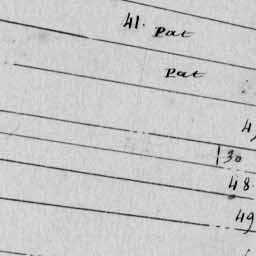 41. Pat
Pat
30
48.
49